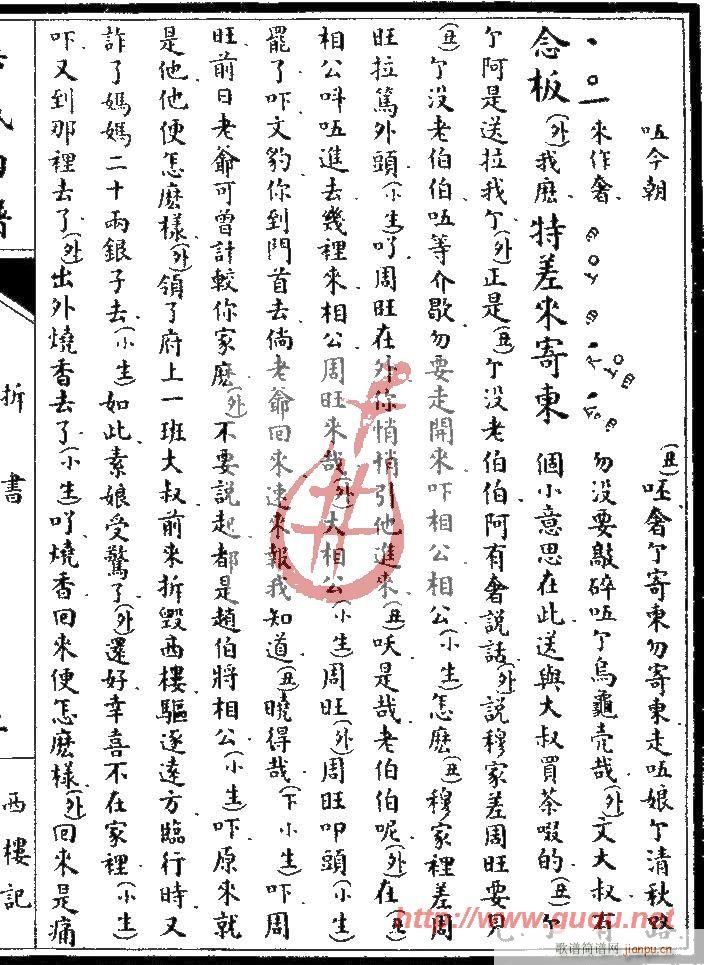 呒今朝
(丑)呸奢𠆤寄柬勿寄柬走呒娘𠆤清秋
來作奢
勿沒要敲碎呒𠆤烏龜壳哉(外)文大叔有
念板(外)我麽特差來寄柬
個小意思在此送與大叔買茶啜的(丑)
𠆤阿是送拉我𠆤(外)正是(丑)𠆤沒老伯伯阿有奢說話(外)說穆家差周旺要見
(丑)𠆤沒老伯伯呒等介歇勿要走開來吓相公相公(小生)怎麽(丑)穆家裡差周
旺拉篤外頭(小生)吖周旺在外你悄悄引他進來(丑)呋是哉老伯伯呢(外)在(丑)
相公呌呒進去幾裡來相公周旺來哉(外)大相公(小生)周旺(外)周旺叩頭(小生)
罷了吓文豹你到門首去倘老爺回來速來報我知道(丑)曉得哉(下小生)吓周
旺前日老爺可曾計較你家麽(外)不要說起都是趙伯將相公(小生)吓原來就
是他他便怎麽樣(外)領了府上一班大叔前來拆毀西樓驅逐遠方臨行時又
詐了媽媽二十兩銀子去(小生)如此素娘受驚了(外)還好幸喜不在家裡(小生)
吓又到那裡去了(外)出外燒香去了(小生)吖燒香回來便怎麽樣(外)回來是痛
拆書
西樓記
http://www.guqu.net
歌谱简谱网
jianpu.cn